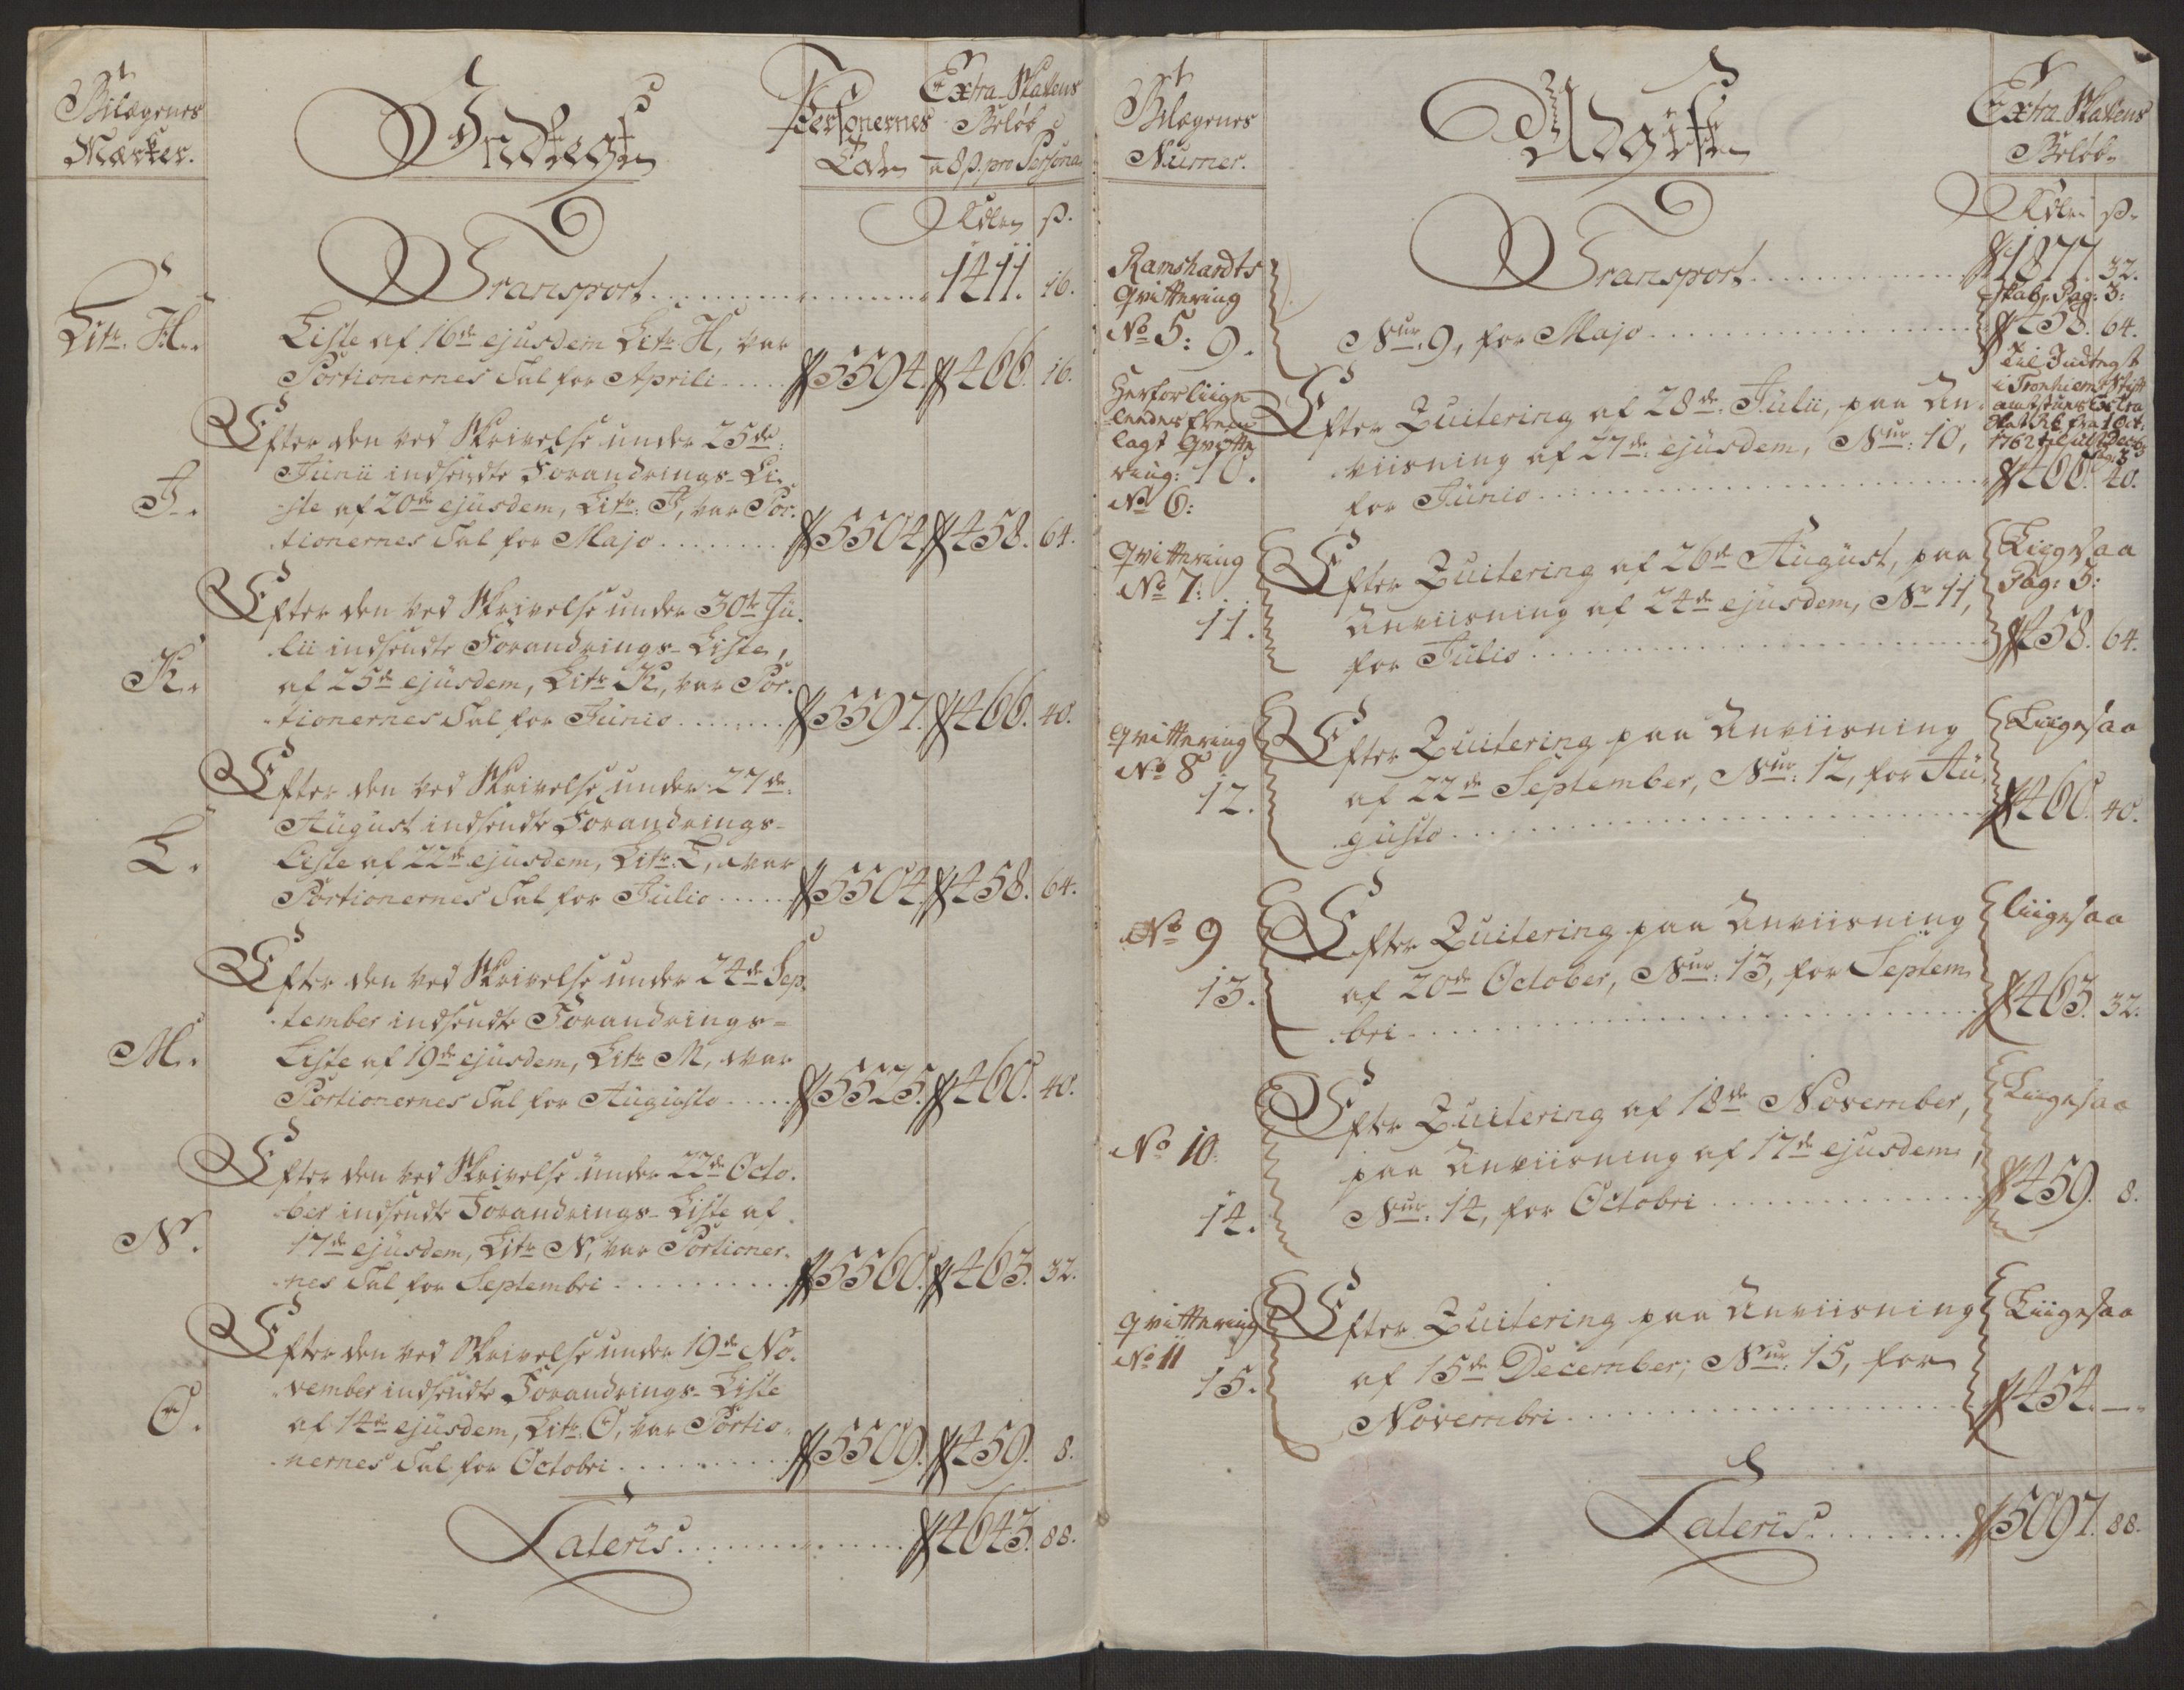 Bilagenes
Mærker.
Indtegt
Personernes
Tal
Extra-Skattens
Beløb
a 8 ß. pro Persona
Rdlr ß.
Transport 1411. 16.
Litr. H.
Liste af 16de ejusdem Litr. H, var
Portionernes Tal for Aprili 5594. 466. 16.
Efter den ved Skrivelse under 25de
Junii indsendte Forandrings-Li-
I.
ste af 20de ejusdem, Litr. I, var Por-
tionernes Tal for Majo 5504. 458. 64.
Efter den ved Skrivelse under 30te Ju-
lii indsendte Forandrings-Liste,
K.
af 25de ejusdem, Litr. K, var Por-
tionernes Tal for Junio 5597. 466. 40.
Efter den ved Skrivelse under 27de
August indsendte Forandrings-
L.
Liste af 22de ejusdem, Litr. L, var
Portionernes Tal for Julio 5504. 458. 64.
Efter den ved Skrivelse under 24de Sep-
tember indsendte Forandrings-
M.
Liste af 19de ejusdem, Litr. M, var
Portionernes Tal for Augusto 5525. 460. 40.
Efter den ved Skrivelse under 22de Octo-
ber indsendte Forandrings-Liste af
N.
17de ejusdem, Litr. N, var Portioner-
nes Tal for Septembri 5560. 463. 32.
Efter den ved Skrivelse under 19de No-
vember indsendte Forandrings-Liste
O.
af 14de ejusdem, Litr. O, var Portio-
nernes Tal for Octobri 5509. 459. 8.
Lateris 4643. 88.
Bilagenes
Numer.
Udgift
Extra-Skattens
Beløb
Rdlr ß.
Transport 1877. 32.
Ramshardts
Qvittering
No 5: 9.
Pag: 3:
Nur. 9, for Majo 458. 64.
Til Indtegt
i Tronhiems Stift
amtstues Extra
Skatt R. fra 1 Oct:
1762 til ult Decbr
Pag: 3
lagt Qvitte
ring: 10.
No 6:
Efter Quitering af 28de Julii, paa An-
viisning af 27de ejusdem, Nur. 10,
for Junio 466. 40.
Qvittering
No 7:
11.
Efter Quitering af 26de August, paa
Anviisning af 24de ejusdem, Nr 11,
for Julio 458. 64.
Liigesaa
Pag: 3:
Qvittering
No 8
12.
Efter Quitering paa Anviisning
af 22de September, Nur. 12, for Au-
gusto 460. 40.
Liigesaa
No 9
13.
Efter Quitering paa Anviisning
af 20de October, Nur. 13, for Septem-
bri 463. 32.
liigesaa
No 10.
14.
Efter Quitering af 18de November,
paa Anviisning af 17de ejusdem,
Nur. 14, for Octobri 459. 8.
Liigesaa
Qvittering
No 11
15.
Efter Quitering paa Anviisning
af 15de December, Nur. 15, for
Novembri 454. —
Liigesaa
Lateris 5097. 88.